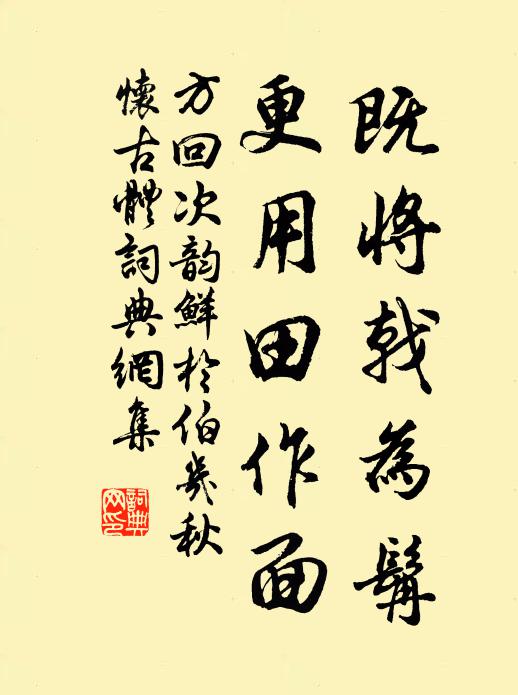 既将戟為髯
更用田作面
方回次韵鮮於伯幾秋
懷古體詞典網集
詞典
网印